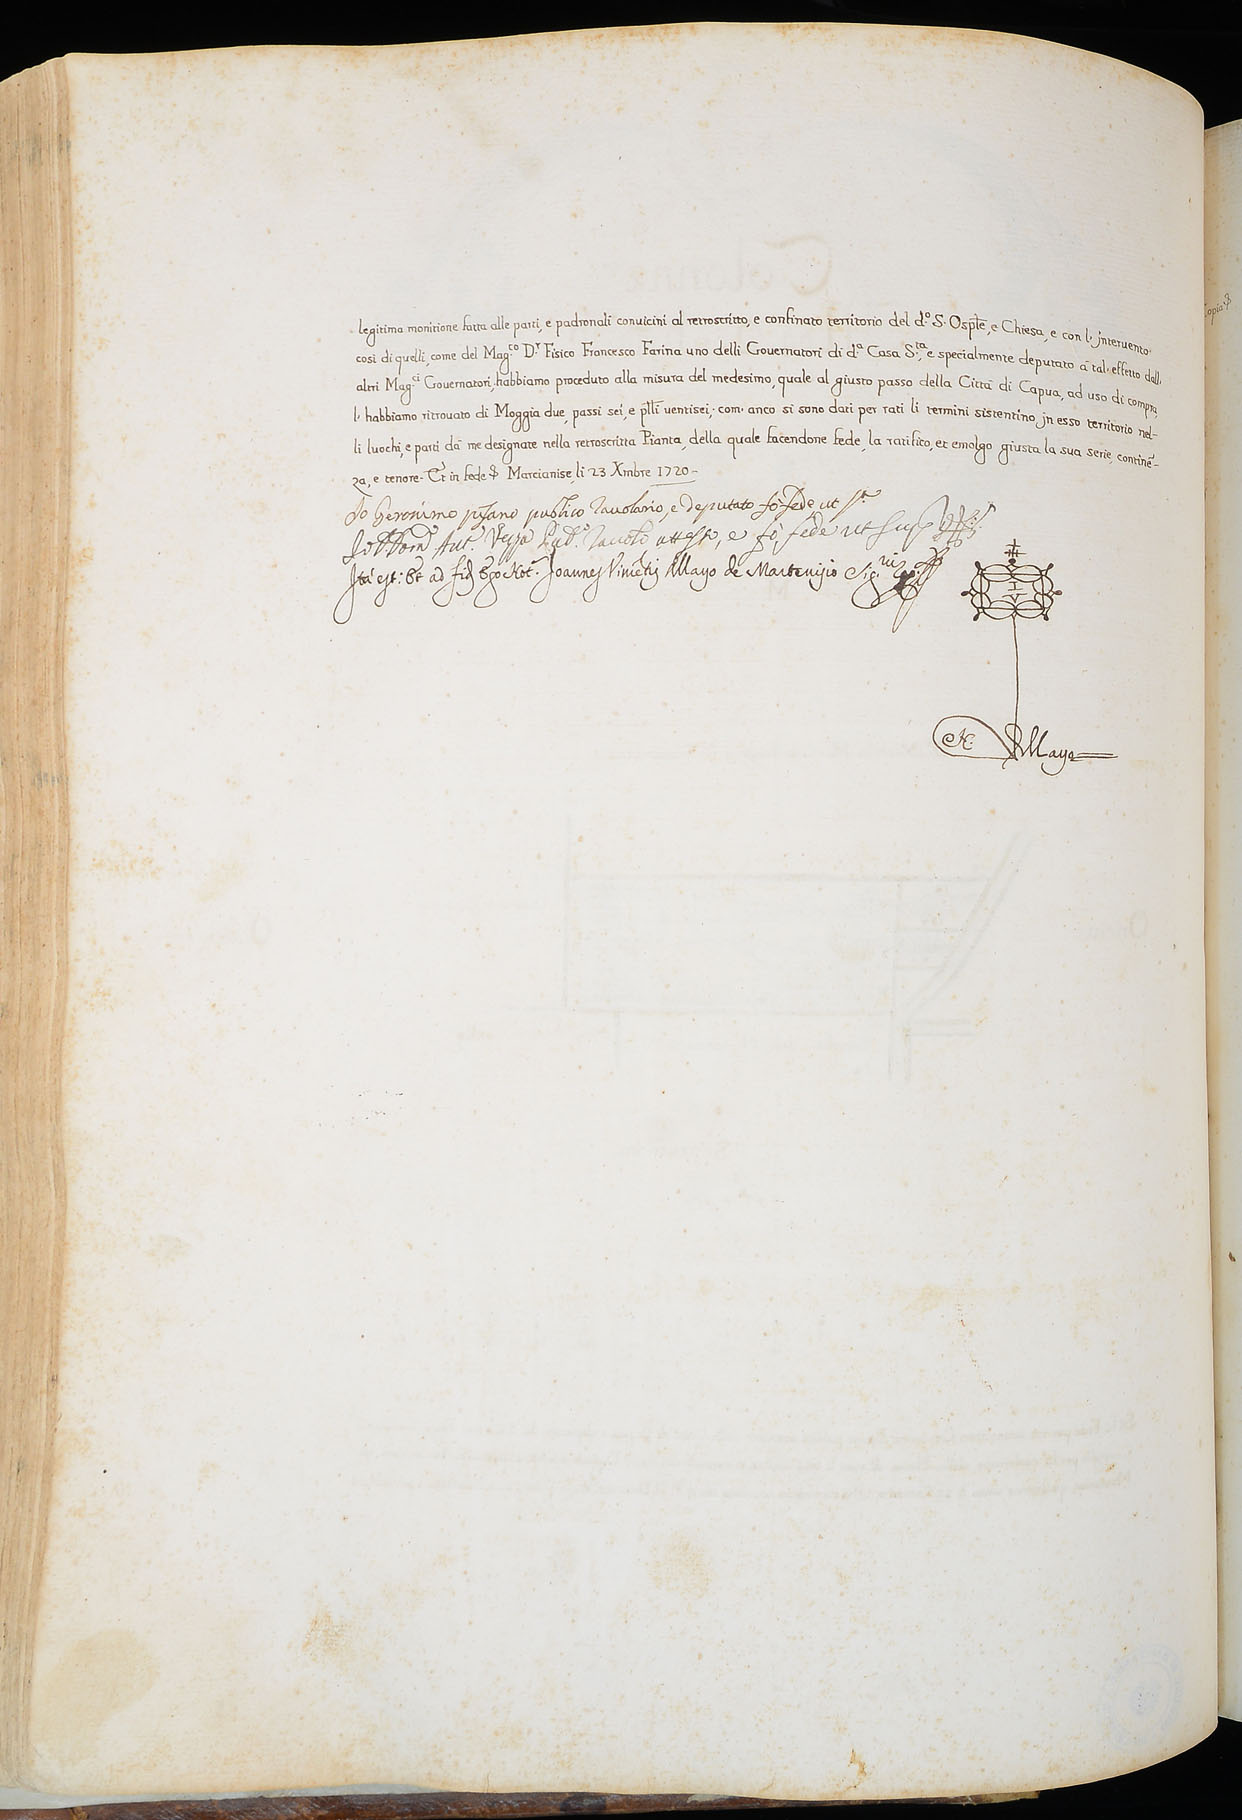 legitima monitione fatta alle parti, e padronali convicini al retroscritto, e confinato territorio del d.º S. Ospłe, e Chiesa, e con l' jntervento
così di quelli, come del Mag.co D.r Fisico Francesco Farina uno delli Governatori di d.a Casa S.ta, e specialmente deputato à tal' effetto dall'
altri Mag.ci Governatori, habbiamo proceduto alla misura del medesimo, quale al giusto passo della Città di Capua, ad uso di compra,
l' habbiamo ritrovato di Moggia due, passi sei, e płłi ventisei, com' anco si sono dati per rati li termini sistentino jn esso territorio nel-
li luochi, e parti dà me designate nella retroscritta Pianta, della quale facendone fede, la ratifico, et emolgo giusta la sua serie, continē-
za, e tenore. Et in fede Marcianise li 23 Xmbre 1720-
Io Geronimo pisano publico Tavolario, e deputato fò fede ut s.a
Ant.º Pub.º attesto, e fò fede ut
Ità est: Et ad fid Ego Not.r Joannes Vincētius Mayo de Martenisio Sig.vi
I V
N. Mayo
Copia